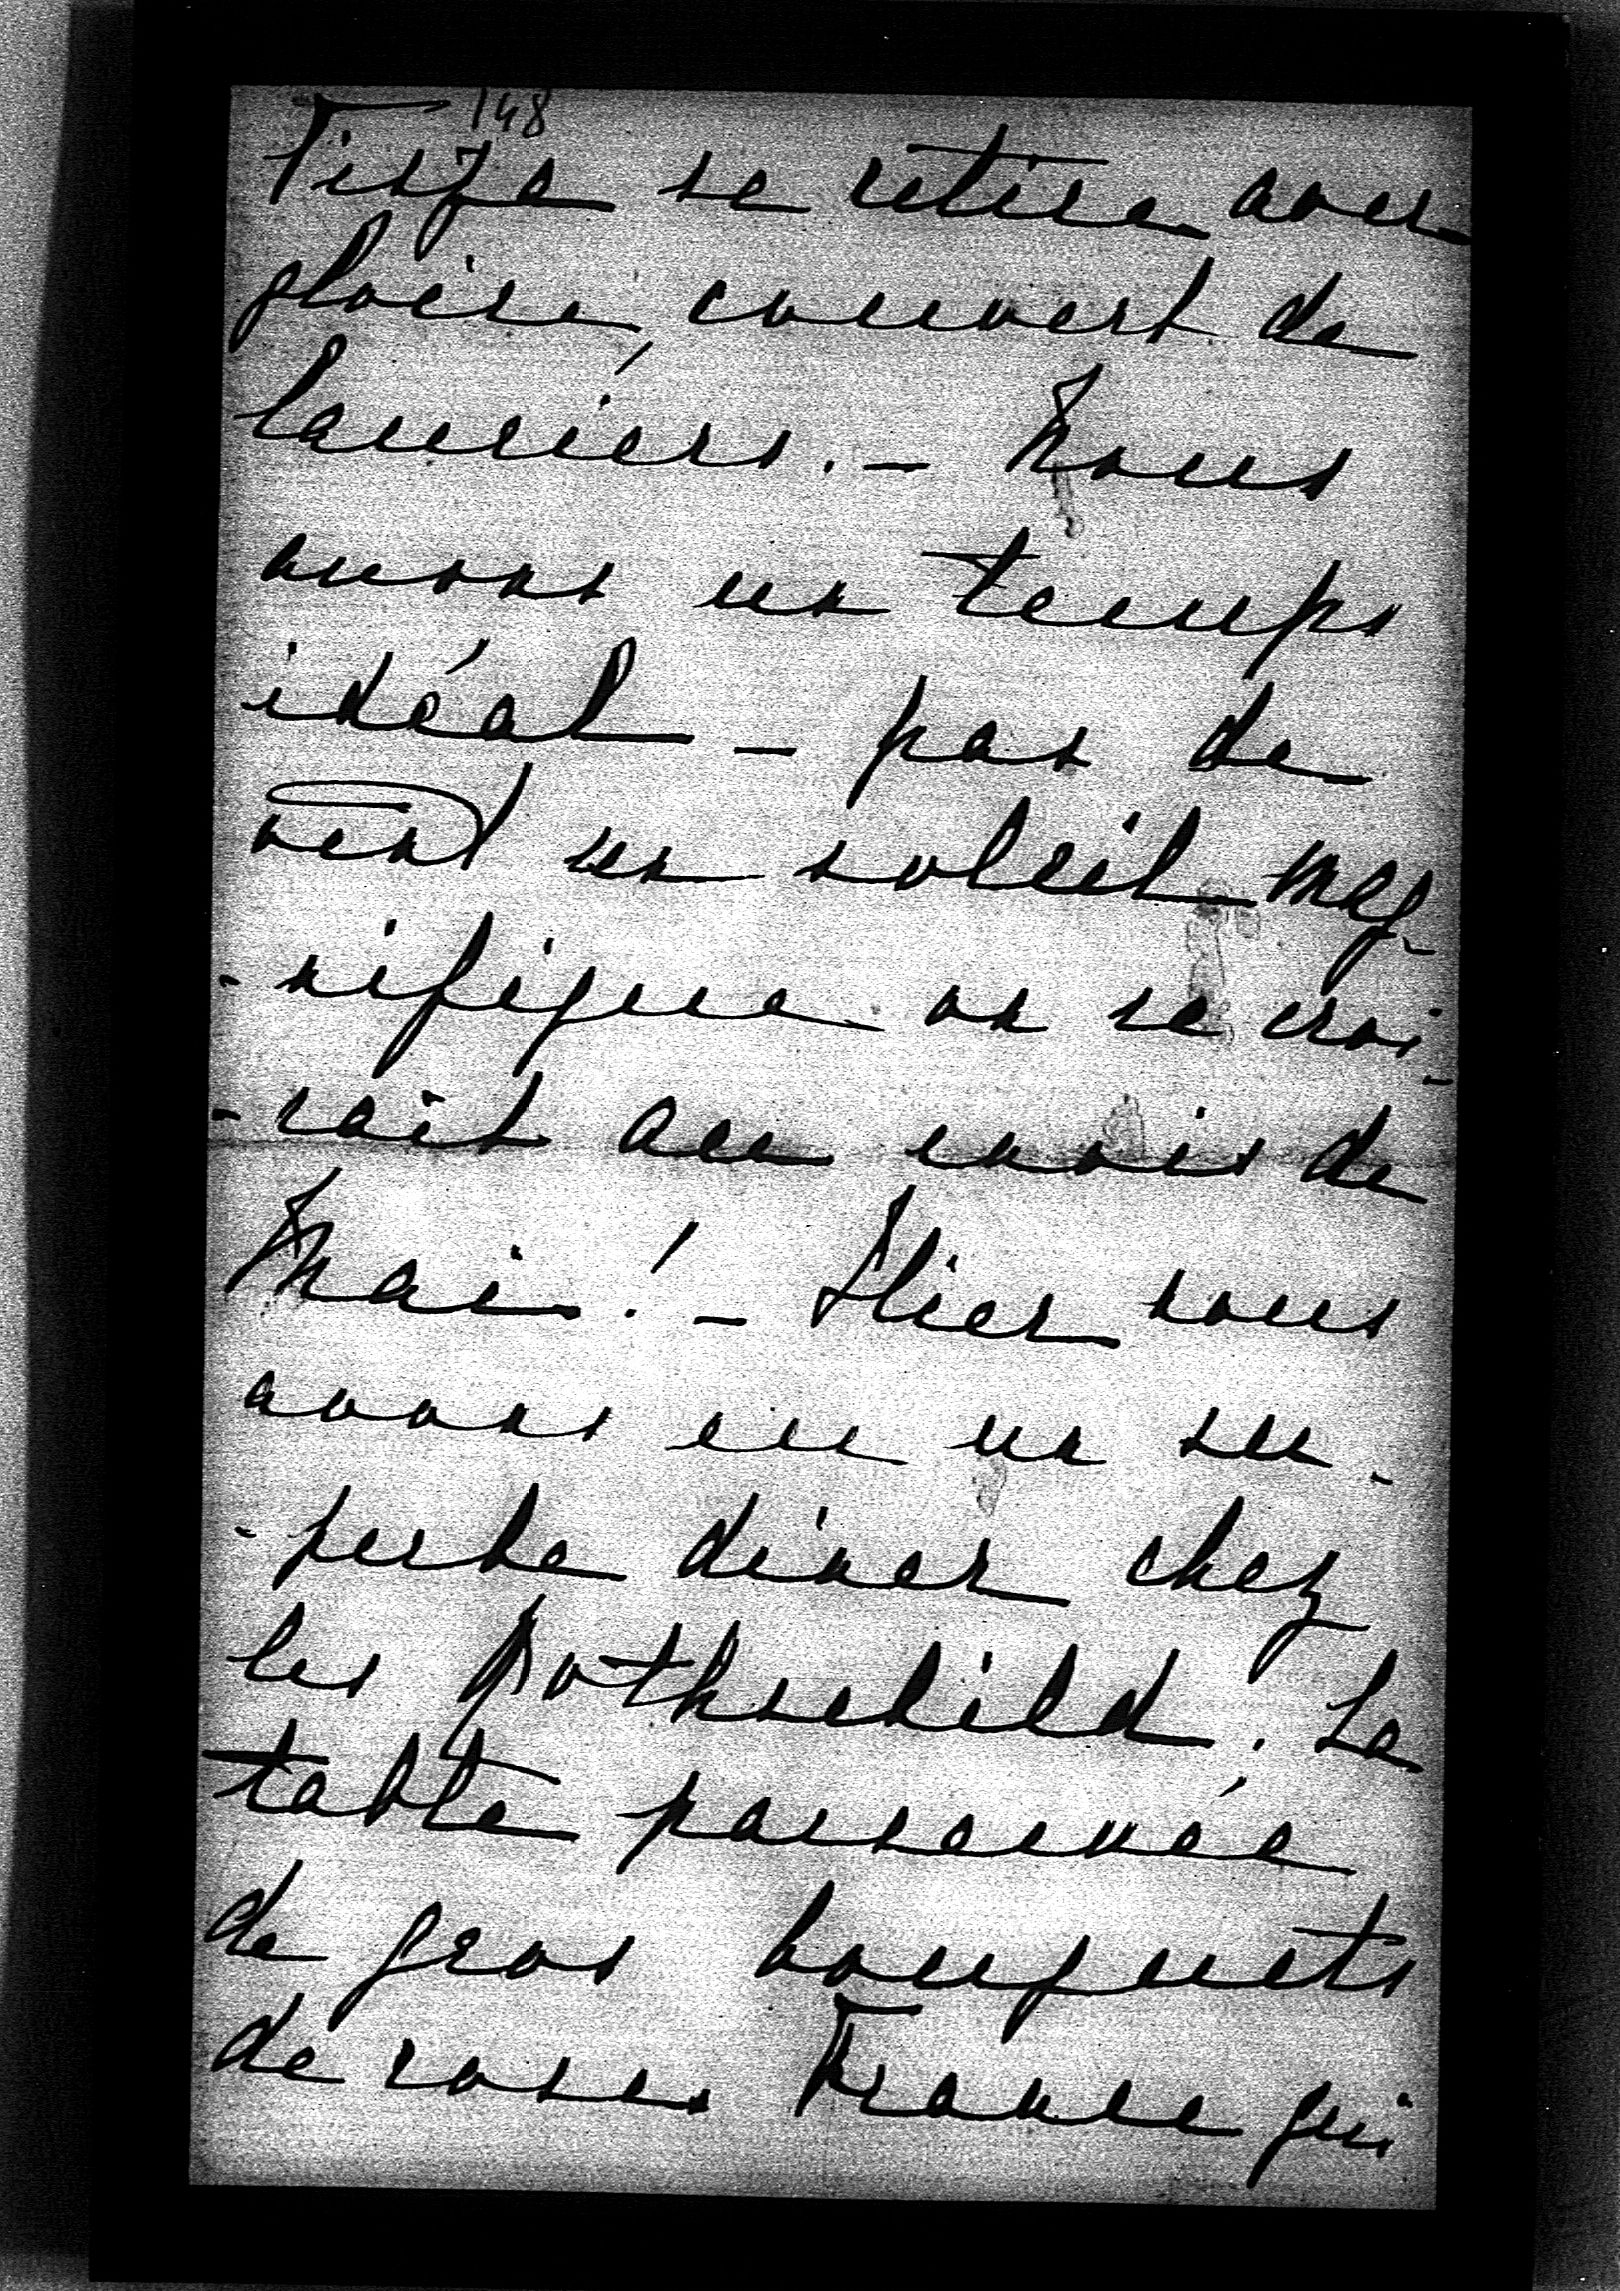 148
Tisza se retire avec
gloire, couvert de
lauriers. - Nous
avons un temps
idéal - pas de
vent un soleil mag-
-nifique on se croi-
-rait au mois de
Mai! - Hier nous
avons eu un su-
-perbe diner chez
les Rothschild. La
table parsemée
de gros bouquets
de roses France qui